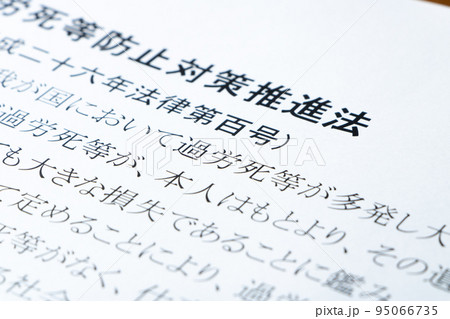 労死等防止対策推進法
成二十六年法律第百号）
我が国において過労死等が多発し大
過労死等が、本人はもとより、その遺
ても大きな損失であることに鑑み
て定めることにより、過労
死等がなく、仕
る社会
pixta
pixta.jp - 95066735